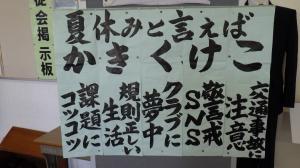 夏休みと言えば
かきくけこ
交通事故に注意
SNS警戒
クラブに夢中
規則正しい生活
課題にコツコツ
徒会掲示板